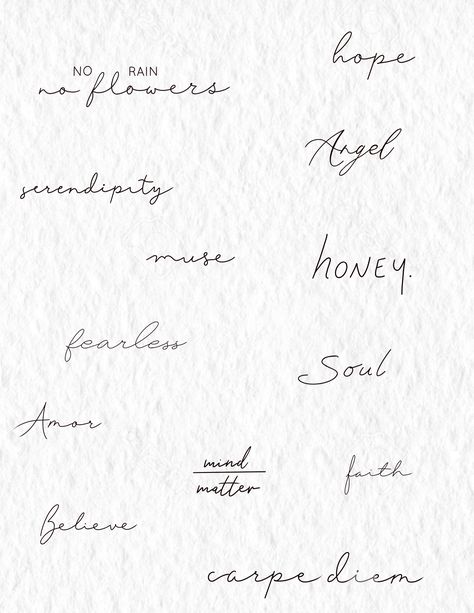 hope
NO RAIN
no flowers
Angel
serendipity
muse
hONEY.
fearless
Soul
Amor
mind
matter
faith
Believe
carpe diem